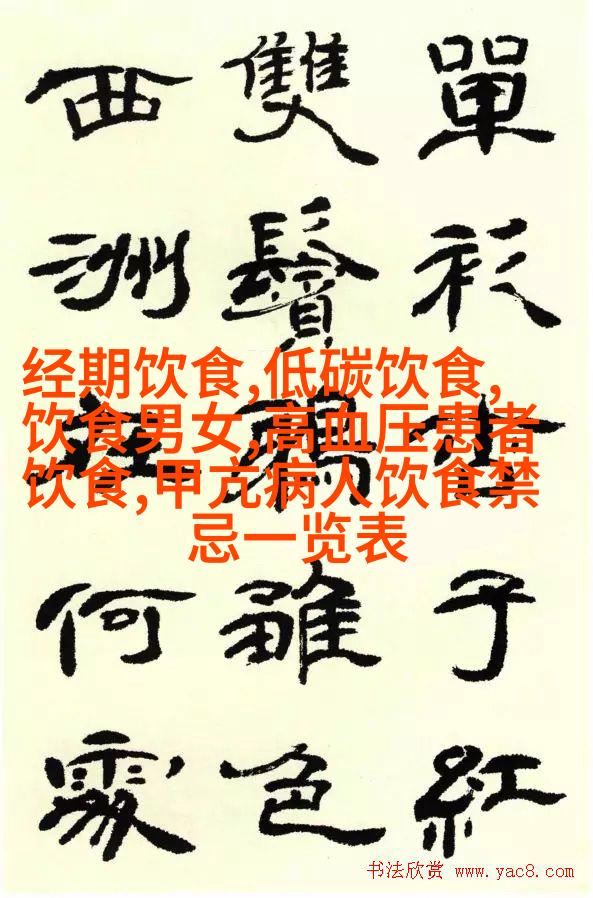 單衫子紅
雙鬢鴉雛色
西洲何處
经期饮食,低碳饮食,
饮食男女,高血压患者
饮食,甲亢病人饮食禁
忌一览表
书法欣赏 www.yac8.com